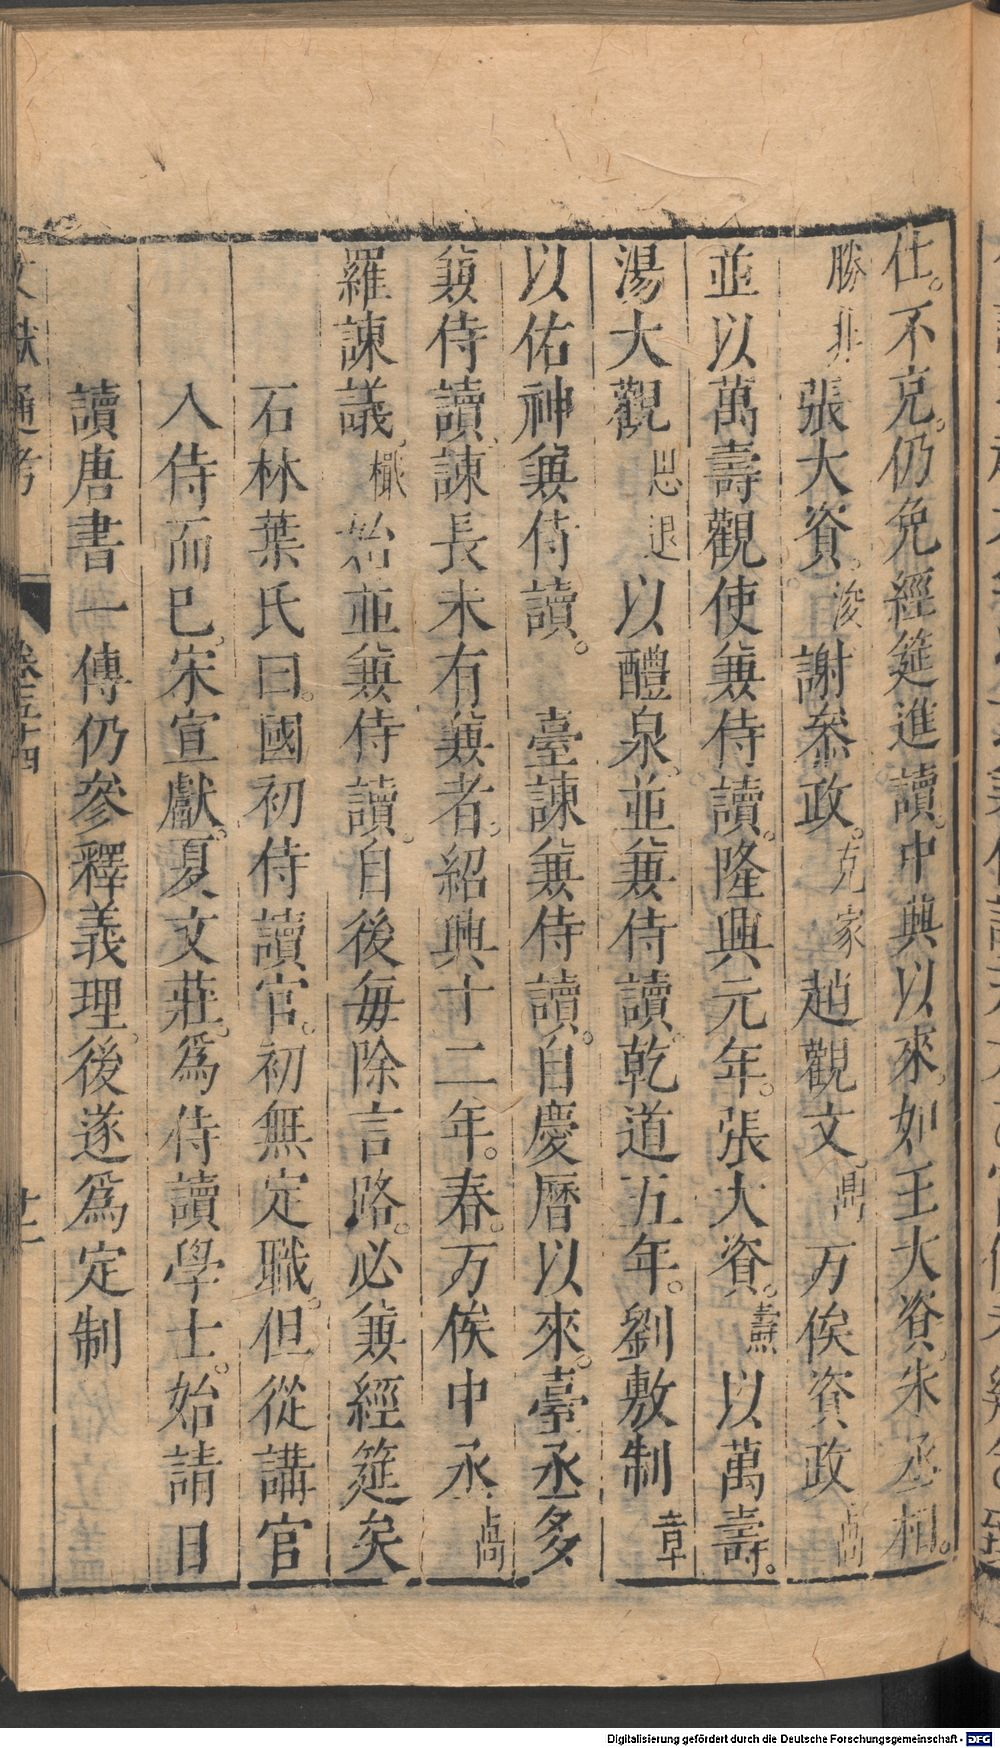 仕。不克。仍免經筵進讀。中興以來。如王大資。朱丞相。
勝非張大資。浚謝叅政。克家趙觀文。鼎万俟資政卨
並以萬壽觀使兼侍讀。隆興元年。張大資。燾以萬壽。
湯大觀思退以醴泉。並兼侍讀。乾道五年。劉敷制章
以佑神兼侍讀。臺諫兼侍讀。自慶曆以來。臺丞多
兼侍讀。諫長未有兼者。紹興十二年。春。万俟中丞卨
羅諫議。檝始並兼侍讀。自後每除言路。必兼經筵矣
石林葉氏曰。國初侍讀官。初無定職。但從講官
入侍而已。宋宣獻。夏文莊。爲侍讀學士。始請日
讀唐書一傳仍參釋義理。後遂爲定制
文獻通考 卷五十四 廿一
Digitalisierung gefördert durch die Deutsche Forschungsgemeinschaft - DFG